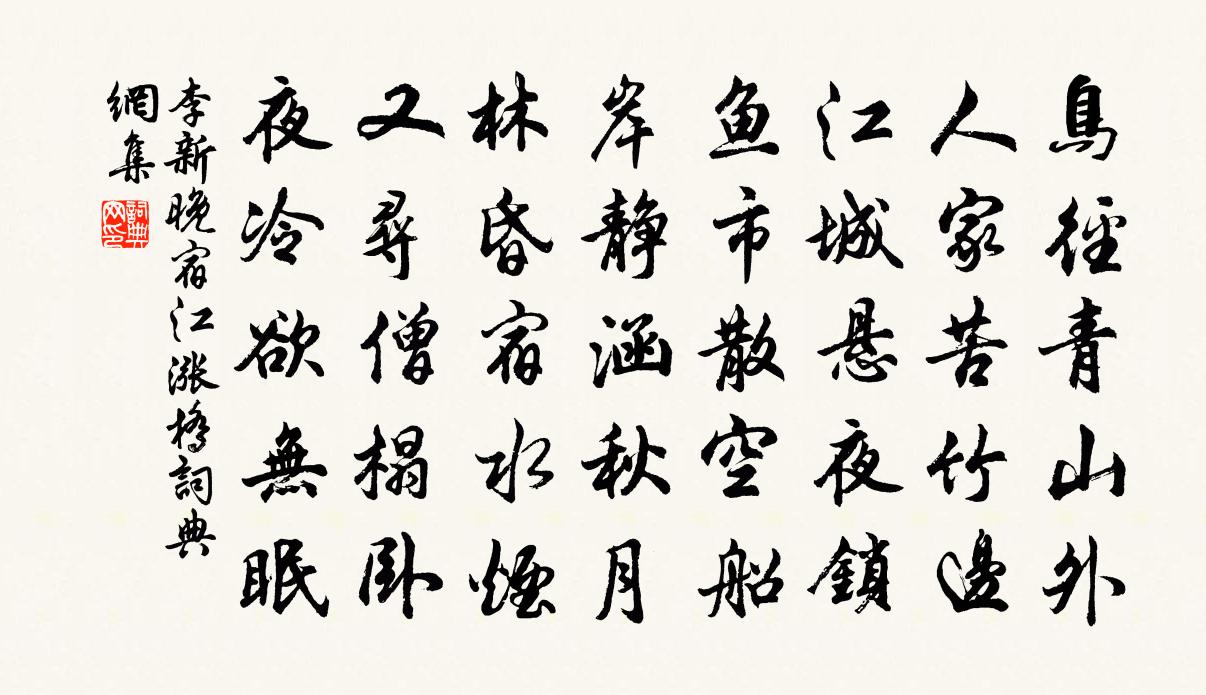 鳥徑青山外
人家苦竹邊
江城悬夜鎖
鱼市散空船
岸靜涵秋月
林昏宿水煙
又尋僧榻卧
夜冷欲無眠
李新晚宿江漲橋詞典
網集
詞典
网印